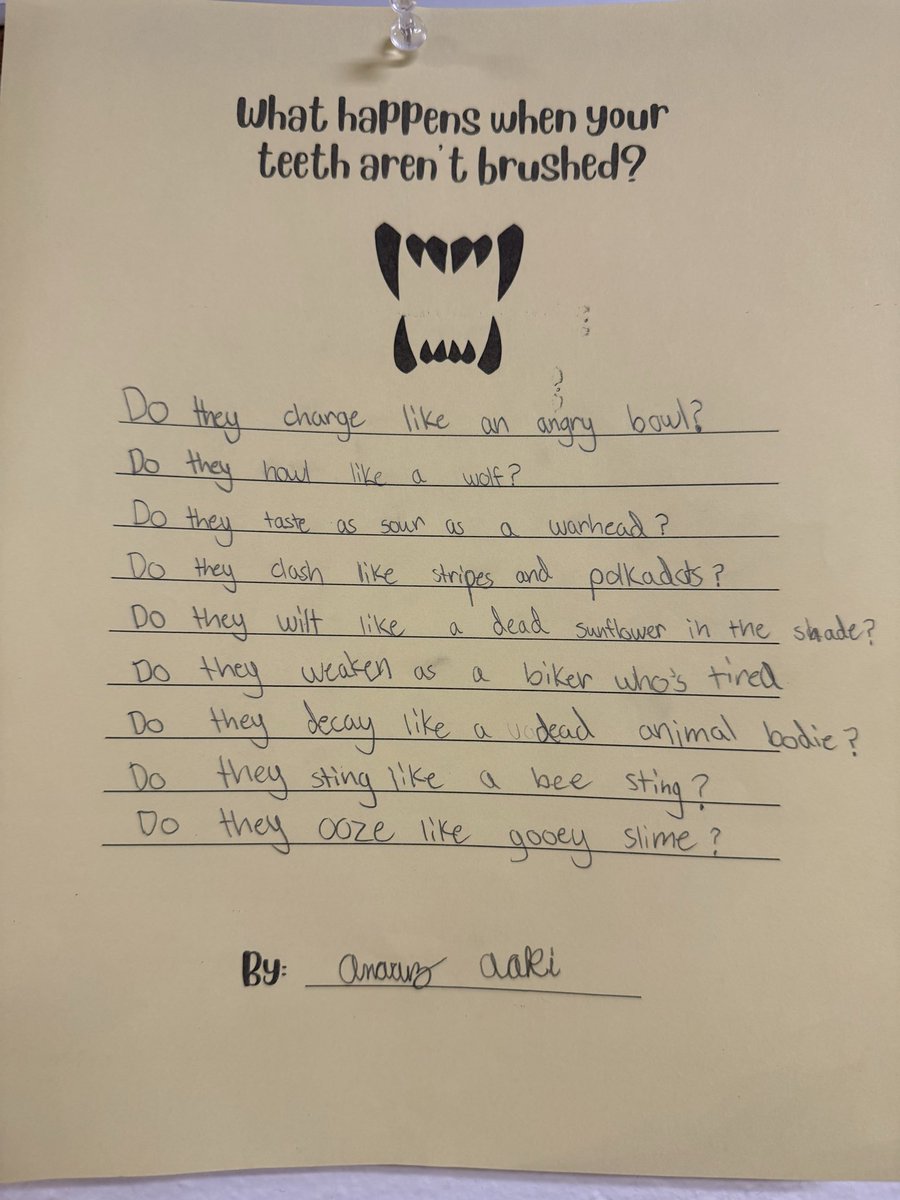 What happens when your
teeth aren't brushed?
Do they change like an angry bowl?
Do they howl like a wolf?
Do they taste as sour as a warhead?
Do they clash like stripes and polkadots?
Do they wilt like a dead sunflower in the shade?
Do they weaken as a biker who's tired
Do they decay like a dead animal bodie?
Do they sting like a bee sting?
Do they ooze like gooey slime?
By: aari